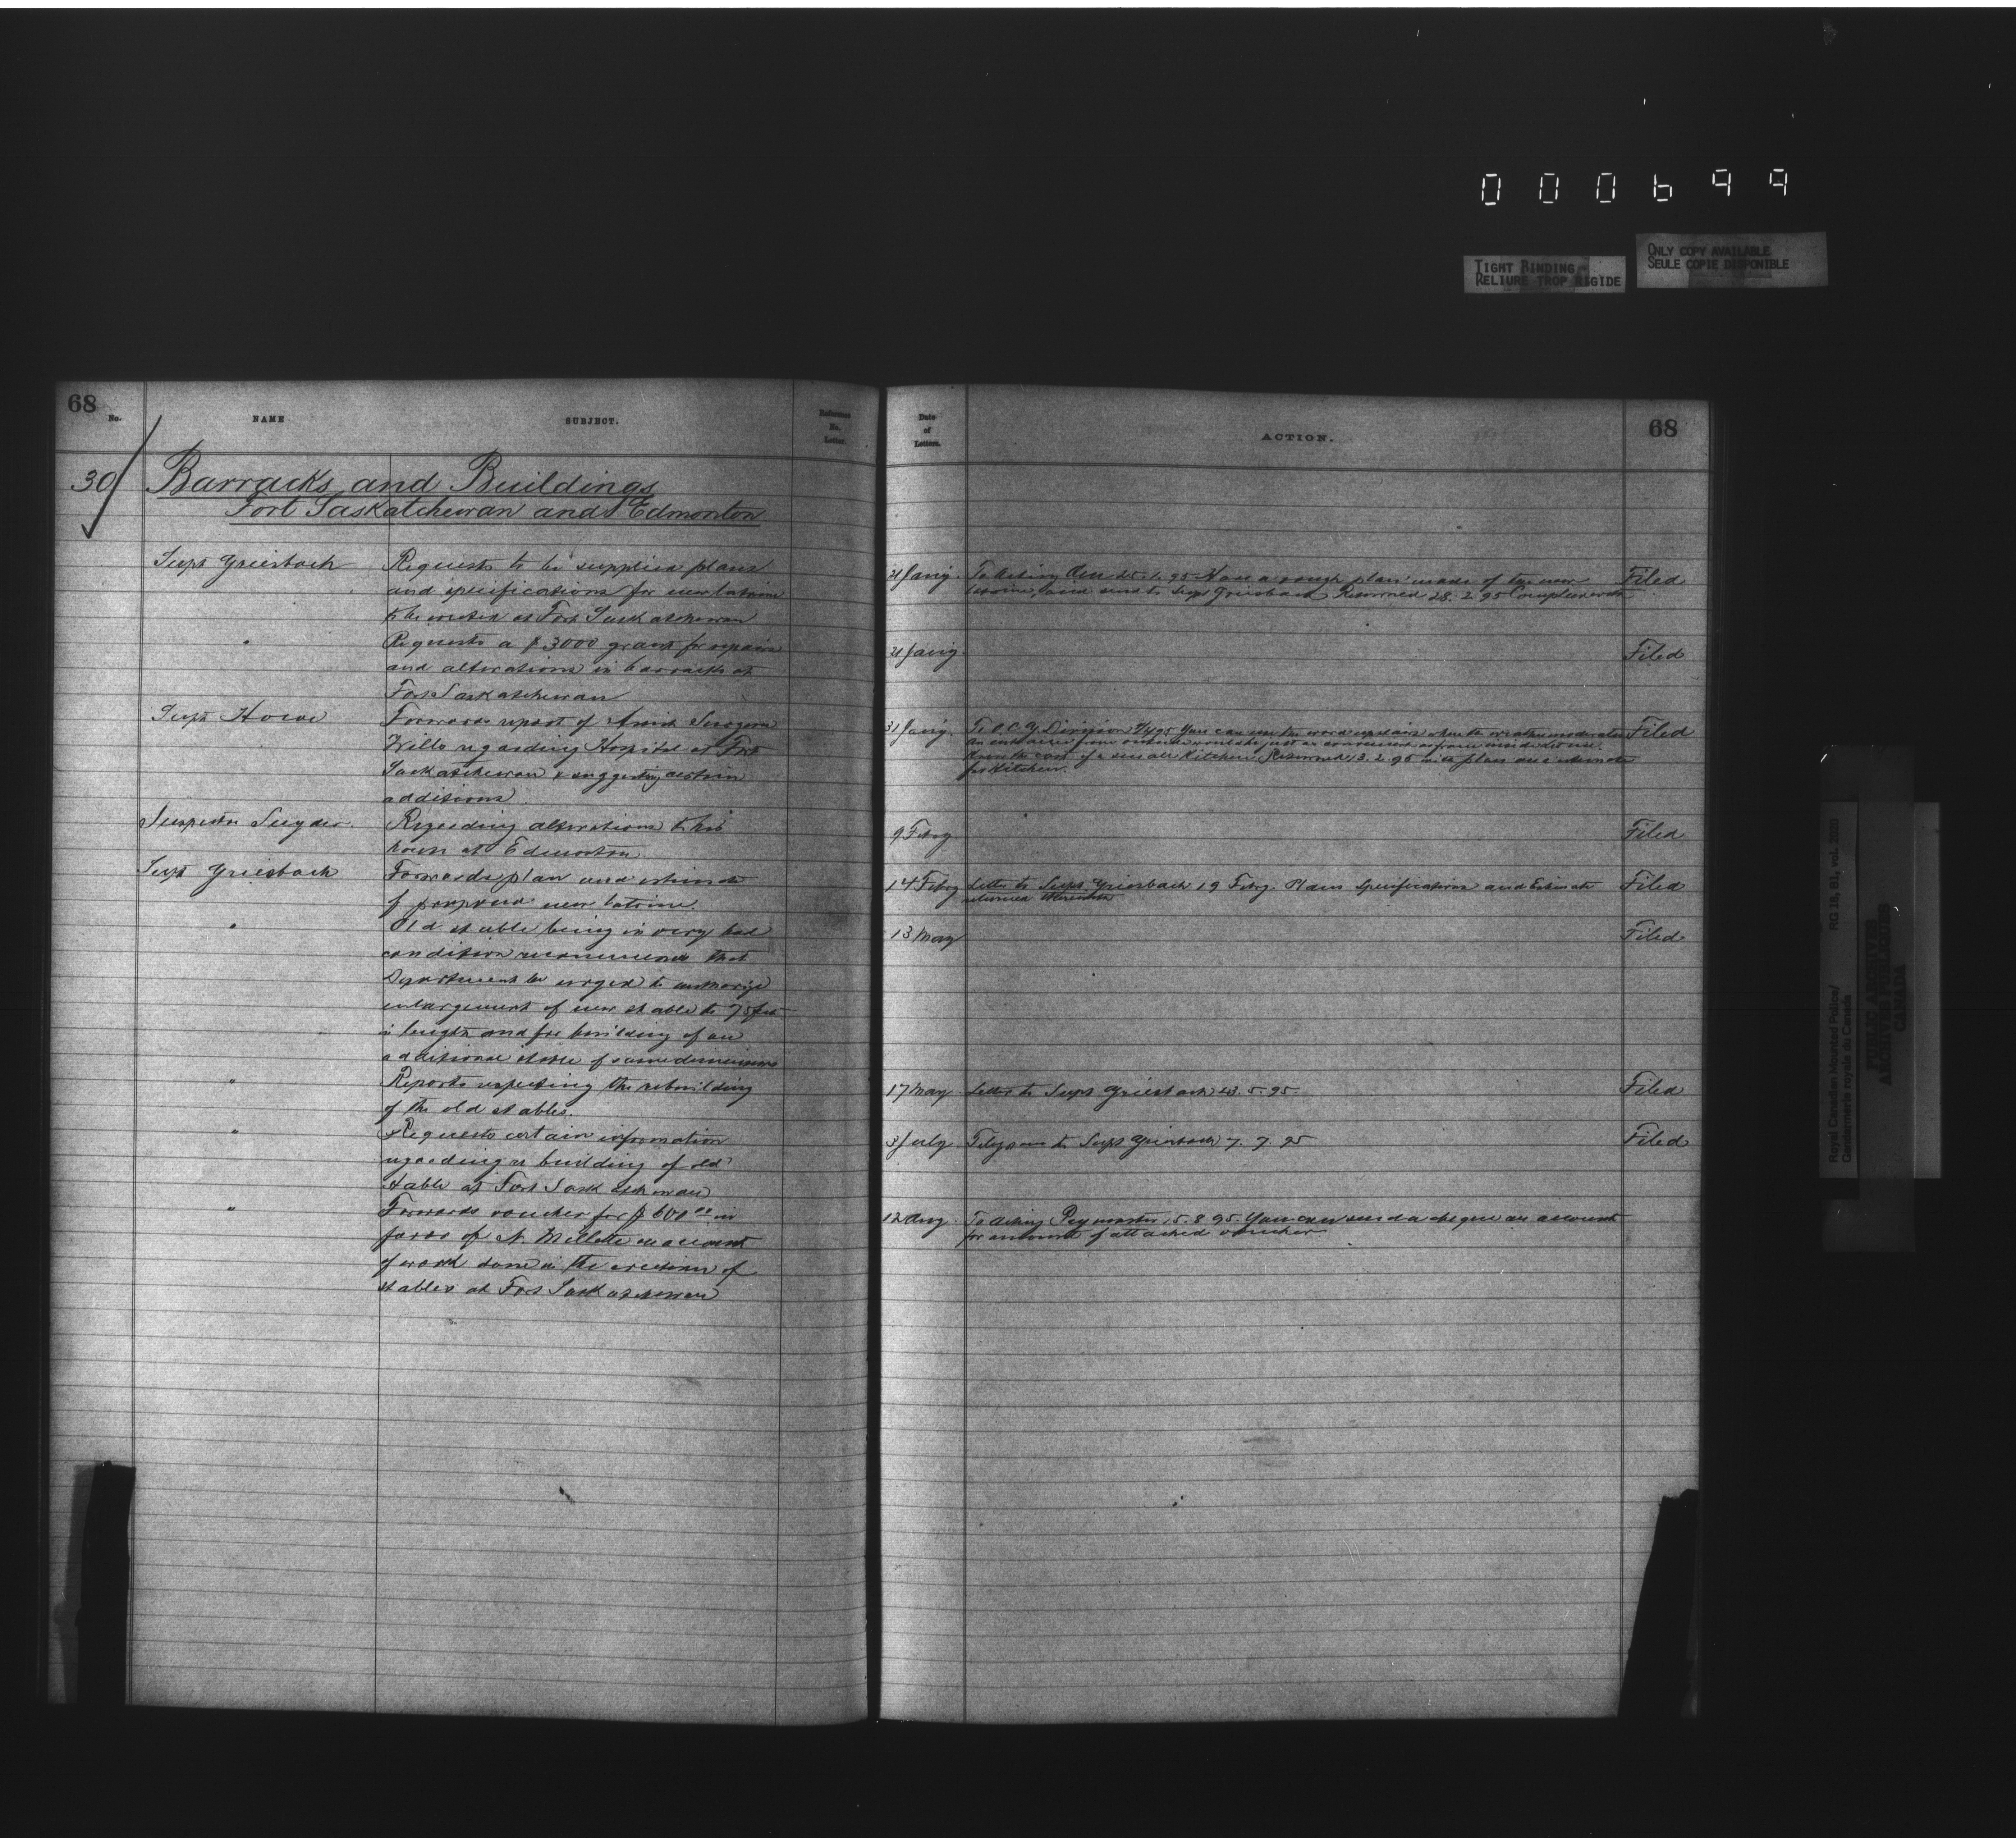 000699
TIGHT BINDING
RELIURE TROP RIGIDE
ONLY COPY AVAILABLE
SEULE COPIE DISPONIBLE
68
No.
NAME
SUBJECT.
Reference
No.
Letter.
30
Barracks and Buildings
Fort Saskatchewan and Edmonton
Supt Griesbach
Requests to be supplied plans
and specifications for new latrine
to be erected at Fort Saskatchewan
"
Requests a $3000 grant for repairs
and alterations in barracks at
Fort Saskatchewan
Supt Howe
Forwards report of Assist Surgeon
Wills regarding Hospital at Fort
Saskatchewan & suggesting certain
additions
Inspector Snyder
Regarding alterations to his
house at Edmonton
Supt Griesbach
Forwards plan and estimate
of proposed new latrine.
"
Old stable being in very bad
condition recommends that
Department be urged to authorize
enlargement of new stable to 75 feet
in length and for building of an
additional stable of same dimensions
"
Reports respecting the rebuilding
of the old stables.
"
Requests certain information
regarding re building of old
stable at Fort Saskatchewan
"
Forwards voucher for $600.00 in
favor of N. Millette on account
of work done in the erection of
stables at Fort Saskatchewan
Date
of
Letters.
ACTION.
68
21 Jany.
To Acting 25.1.95 Have a rough plan made of the new
latrine, and send to Supt Griesbach Returned 28.2.95 Complied with
Filed
21 Jany
Filed
31 Jany.
To O.C. G. Division You can use the ward upstairs when the weather moderates
An entrance from outside would be just as convenient as from inside. Let me
know the cost of a small kitchen. Returned 13.2.95 with plan and estimate
for kitchen.
Filed
9 Febry
Filed
14 Febry
Letter to Supt. Griesbach 19 Febry. Plans Specifications and Estimate
returned therewith
Filed
13 May
Filed
17 May
Letter to Supt Griesbach 23.5.95.
Filed
3 July
Telegram to Supt Griesbach 7.7.95
Filed
12 Aug.
To Acting Paymaster 15.8.95. You can send a cheque on account
for amount of attached voucher
Royal Canadian Mounted Police/
Gendarmerie royale du Canada
RG 18, B1, vol. 2020
PUBLIC ARCHIVES
ARCHIVES PUBLIQUES
CANADA